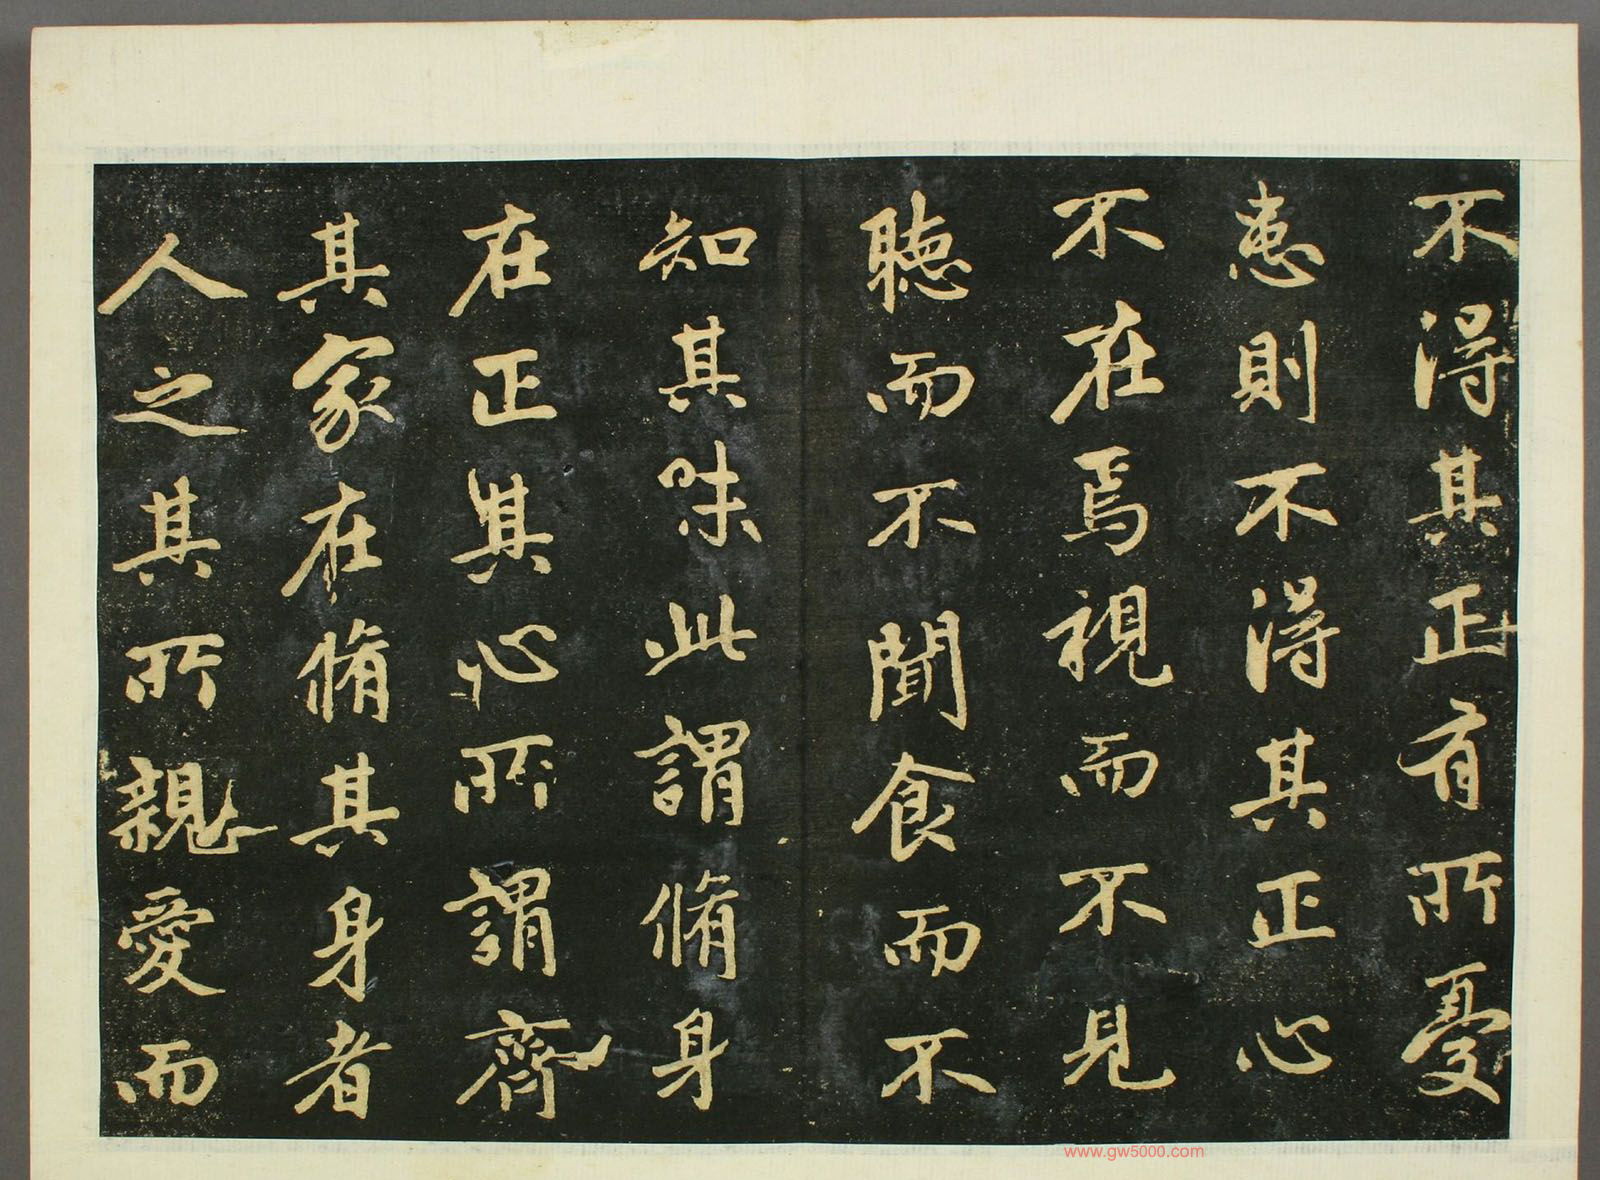 不得其正有所憂
患則不得其正心
不在焉視而不見
聽而不聞食而不
知其味此謂脩身
在正其心所謂齊
其家在脩其身者
人之其所親愛而
www.gw5000.com